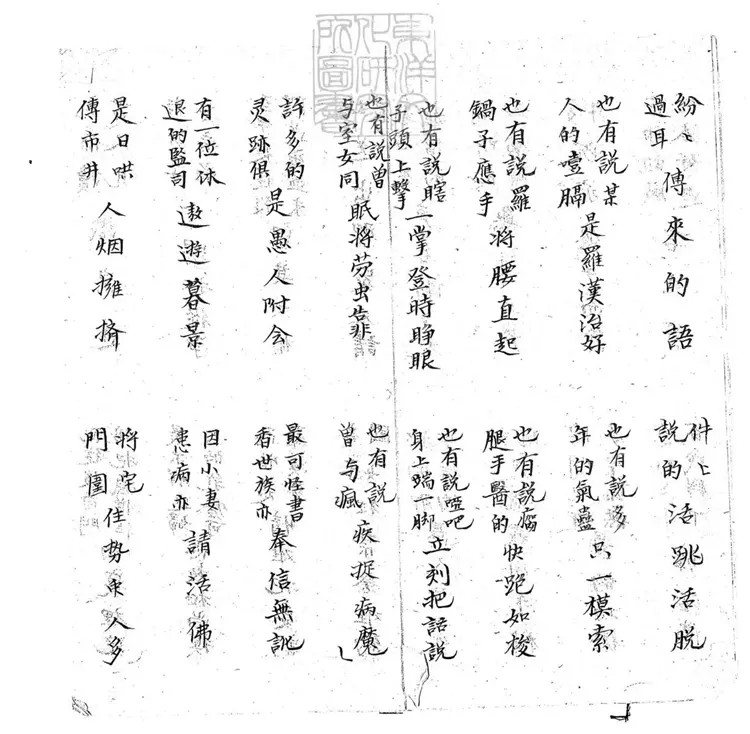 東洋文化研究所圖書
紛〻過耳傳來的語
件〻說的活跳活脫
也有說某人的噎膈是羅漢治好
也有說多年的氣蠱只一模索
也有說羅鍋子應手將腰直起
也有說瘸腿手醫的快跑如梭
也有說瞎子頭上擊一掌登時睜眼
也有說啞吧身上踹一脚立刻把話說
也有說曾与室女同眠將劳虫靠
也有說曾与瘋疾捉病魔
許多的灵跡俱是愚人附会
最可怪書香世族亦奉信無訛
有一位休退的監司遨遊暮景
因小妻患病亦請活佛
是日哄傳市井人烟擁擠
將宅門圍住势衆人多